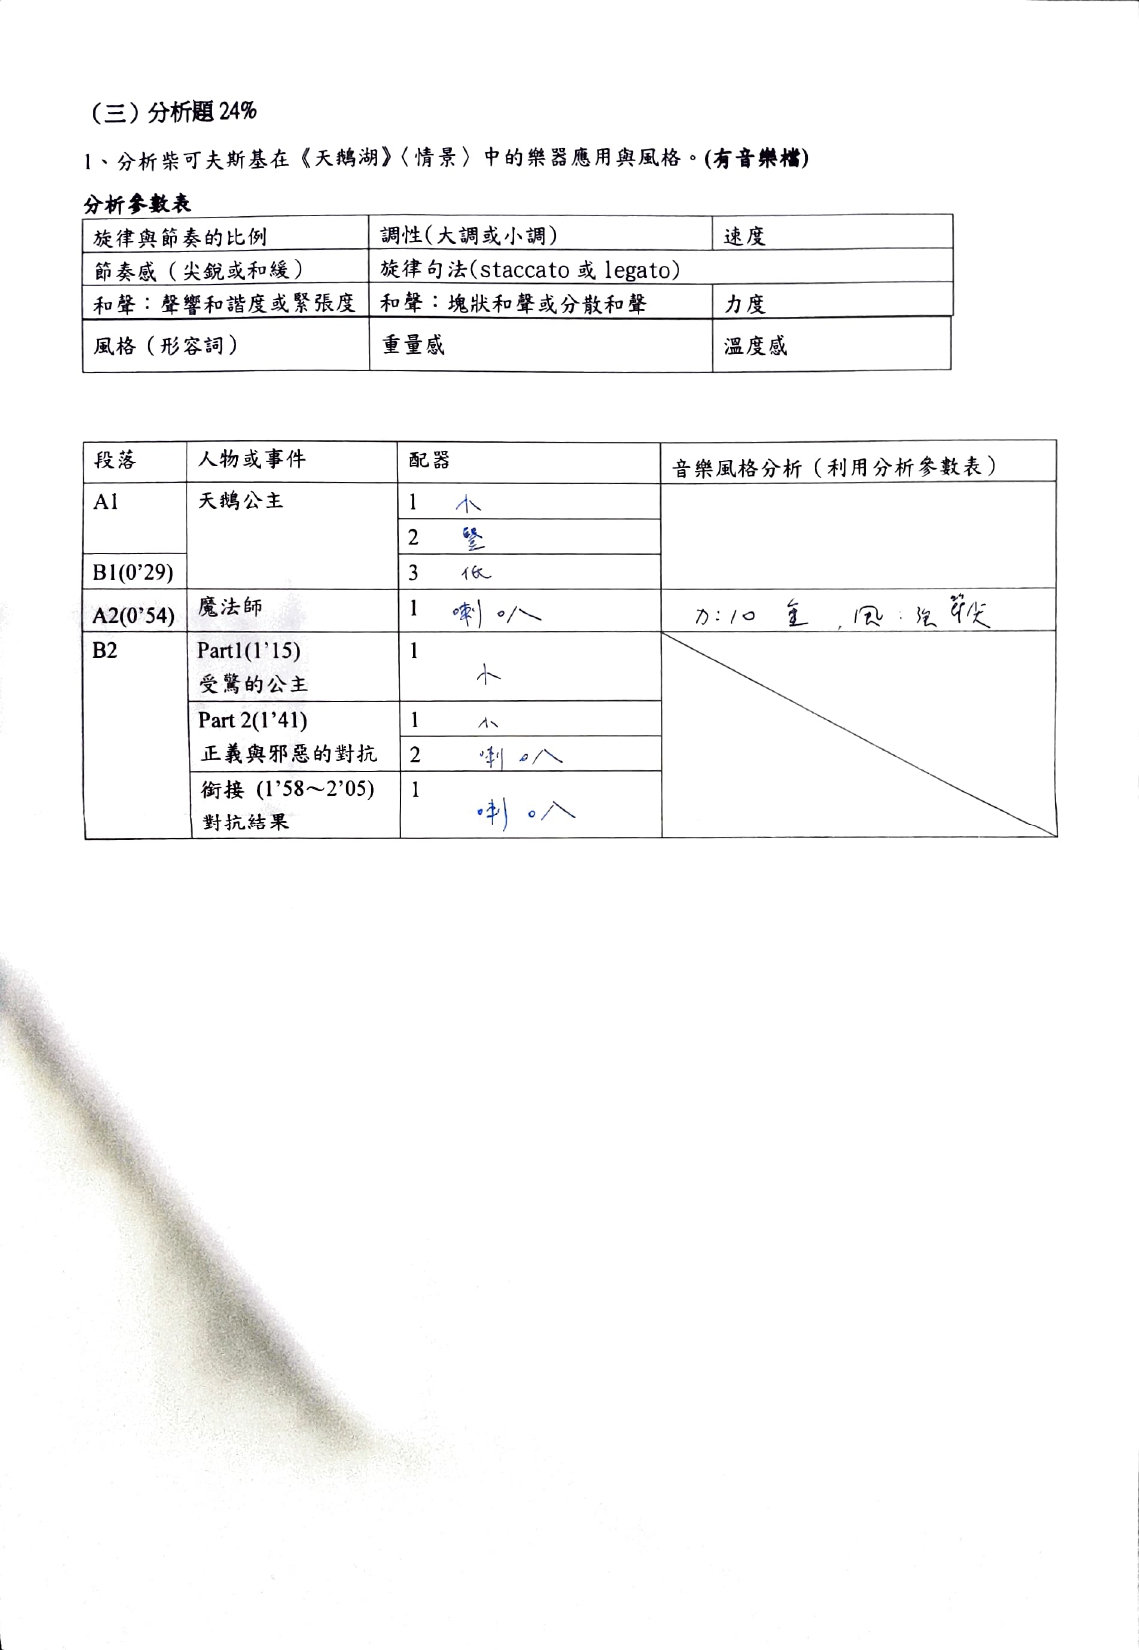 （三）分析題 24%
1、分析柴可夫斯基在《天鵝湖》〈情景〉中的樂器應用與風格。(有音樂檔)
分析參數表
旋律與節奏的比例 調性(大調或小調) 速度
節奏感（尖銳或和緩） 旋律句法(staccato 或 legato)
和聲：聲響和諧度或緊張度 和聲：塊狀和聲或分散和聲 力度
風格（形容詞） 重量感 溫度感
段落 人物或事件 配器 音樂風格分析（利用分析參數表）
A1 天鵝公主 1 小
2 豎
B1(0’29) 3 低
A2(0’54) 魔法師 1 喇叭 力:10 重，風:強
B2 Part1(1’15) 1
受驚的公主 小
Part 2(1’41) 1 小
正義與邪惡的對抗 2 喇叭
銜接 (1’58～2’05) 1
對抗結果 喇叭